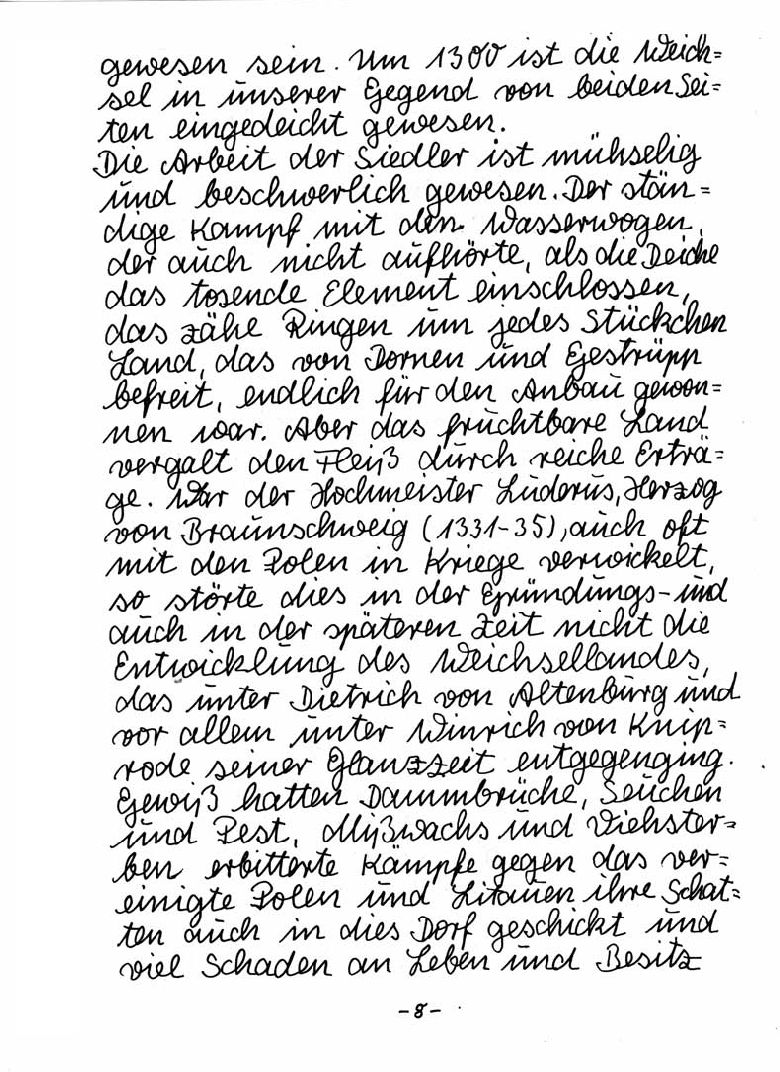 gewesen sein. Um 1300 ist die Weich=
sel in unserer Gegend von beiden Sei=
ten eingedeicht gewesen.
Die Arbeit der Siedler ist mühselig
und beschwerlich gewesen. Der stän=
dige Kampf mit den Wasserwogen,
der auch nicht aufhörte, als die Deiche
das tosende Element einschlossen,
das zähe Ringen um jedes Stückchen
Land, das von Dornen und Gestrüpp
befreit, endlich für den Anbau gewon=
nen war. Aber das fruchtbare Land
vergalt den Fleiß durch reiche Erträ=
ge. War der Hochmeister Luderus, Herzog
von Braunschweig (1331-35), auch oft
mit den Polen in Kriege verwickelt,
so störte dies in der Gründungs- und
auch in der späteren Zeit nicht die
Entwicklung des Weichsellandes,
das unter Dietrich von Altenburg und
vor allem unter Winrich von Knip=
rode seiner Glanzzeit entgegenging.
Gewiß hatten Dammbrüche, Seuchen
und Pest, Mißwachs und Viehster=
ben erbitterte Kämpfe gegen das ver=
einigte Polen und Litauen ihre Schat=
ten auch in dies Dorf geschickt und
viel Schaden an Leben und Besitz
-8-